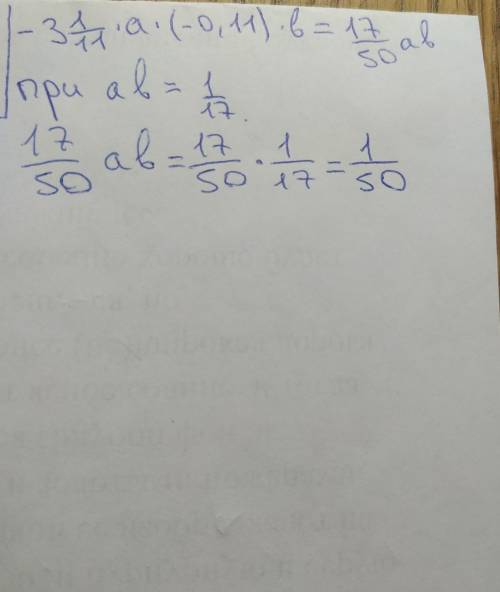 -3 1/11 · a · (-0,11) · b = 17/50 ab
при ab = 1/17.
17/50 ab = 17/50 · 1/17 = 1/50